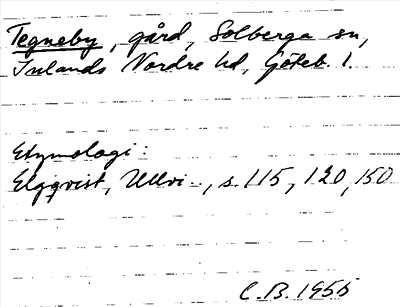 Tegneby, gård, Solberga sn,
Inlands Nordre hd, Göteb. l.
Etymologi:
Elgqvist, Ullvi-, s. 115, 120, 150
C.B. 1955